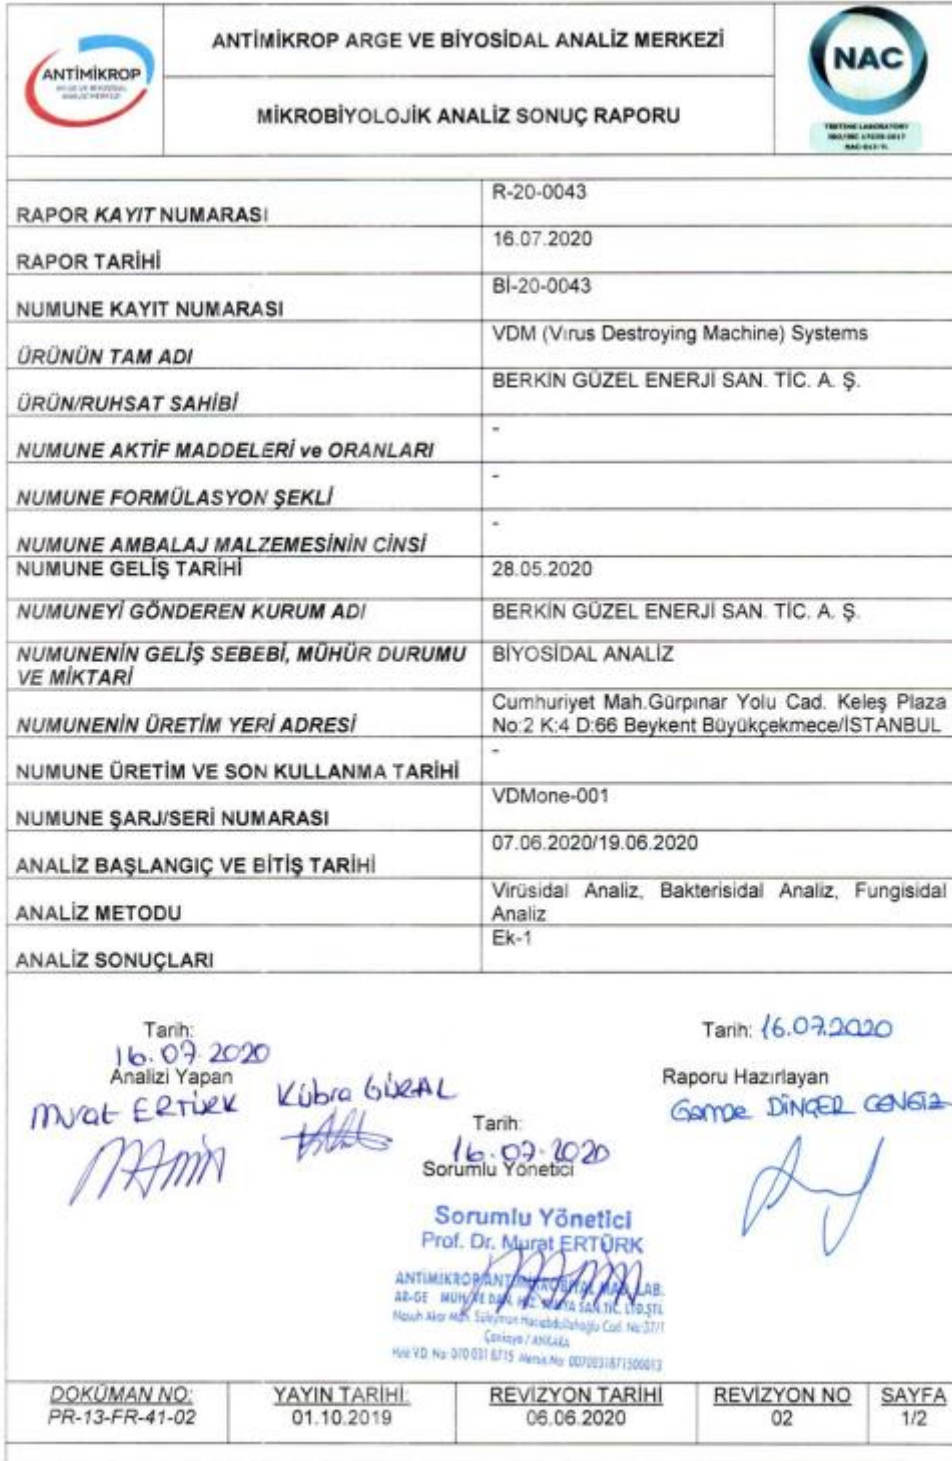 ANTİMİKROP
ANTİMİKROP ARGE VE BİYOSİDAL ANALİZ MERKEZİ
MİKROBİYOLOJİK ANALİZ SONUÇ RAPORU
NAC
TESTING LABORATORY
RAPOR KAYIT NUMARASI
R-20-0043
RAPOR TARİHİ
16.07.2020
NUMUNE KAYIT NUMARASI
Bİ-20-0043
ÜRÜNÜN TAM ADI
VDM (Virus Destroying Machine) Systems
ÜRÜN/RUHSAT SAHİBİ
BERKİN GÜZEL ENERJİ SAN. TİC. A. Ş.
NUMUNE AKTİF MADDELERİ ve ORANLARI
-
NUMUNE FORMÜLASYON ŞEKLİ
-
NUMUNE AMBALAJ MALZEMESİNİN CİNSİ
-
NUMUNE GELİŞ TARİHİ
28.05.2020
NUMUNEYİ GÖNDEREN KURUM ADI
BERKİN GÜZEL ENERJİ SAN. TİC. A. Ş.
NUMUNENİN GELİŞ SEBEBİ, MÜHÜR DURUMU
VE MİKTARİ
BİYOSİDAL ANALİZ
NUMUNENİN ÜRETİM YERİ ADRESİ
Cumhuriyet Mah.Gürpınar Yolu Cad. Keleş Plaza
No:2 K:4 D:66 Beykent Büyükçekmece/İSTANBUL
NUMUNE ÜRETİM VE SON KULLANMA TARİHİ
-
NUMUNE ŞARJ/SERİ NUMARASI
VDMone-001
ANALİZ BAŞLANGIÇ VE BİTİŞ TARİHİ
07.06.2020/19.06.2020
ANALİZ METODU
Virüsidal Analiz, Bakterisidal Analiz, Fungisidal
Analiz
ANALİZ SONUÇLARI
Ek-1
Tarih:
16.07.2020
Analizi Yapan
Murat ERTÜRK Kübra GÜRAL
Tarih: 16.07.2020
Raporu Hazırlayan
Gamze DİNÇER CENGİZ
Tarih:
16.07.2020
Sorumlu Yönetici
Sorumlu Yönetici
Prof. Dr. Murat ERTÜRK
DOKÜMAN NO:
PR-13-FR-41-02
YAYIN TARİHİ:
01.10.2019
REVİZYON TARİHİ
06.06.2020
REVİZYON NO
02
SAYFA
1/2